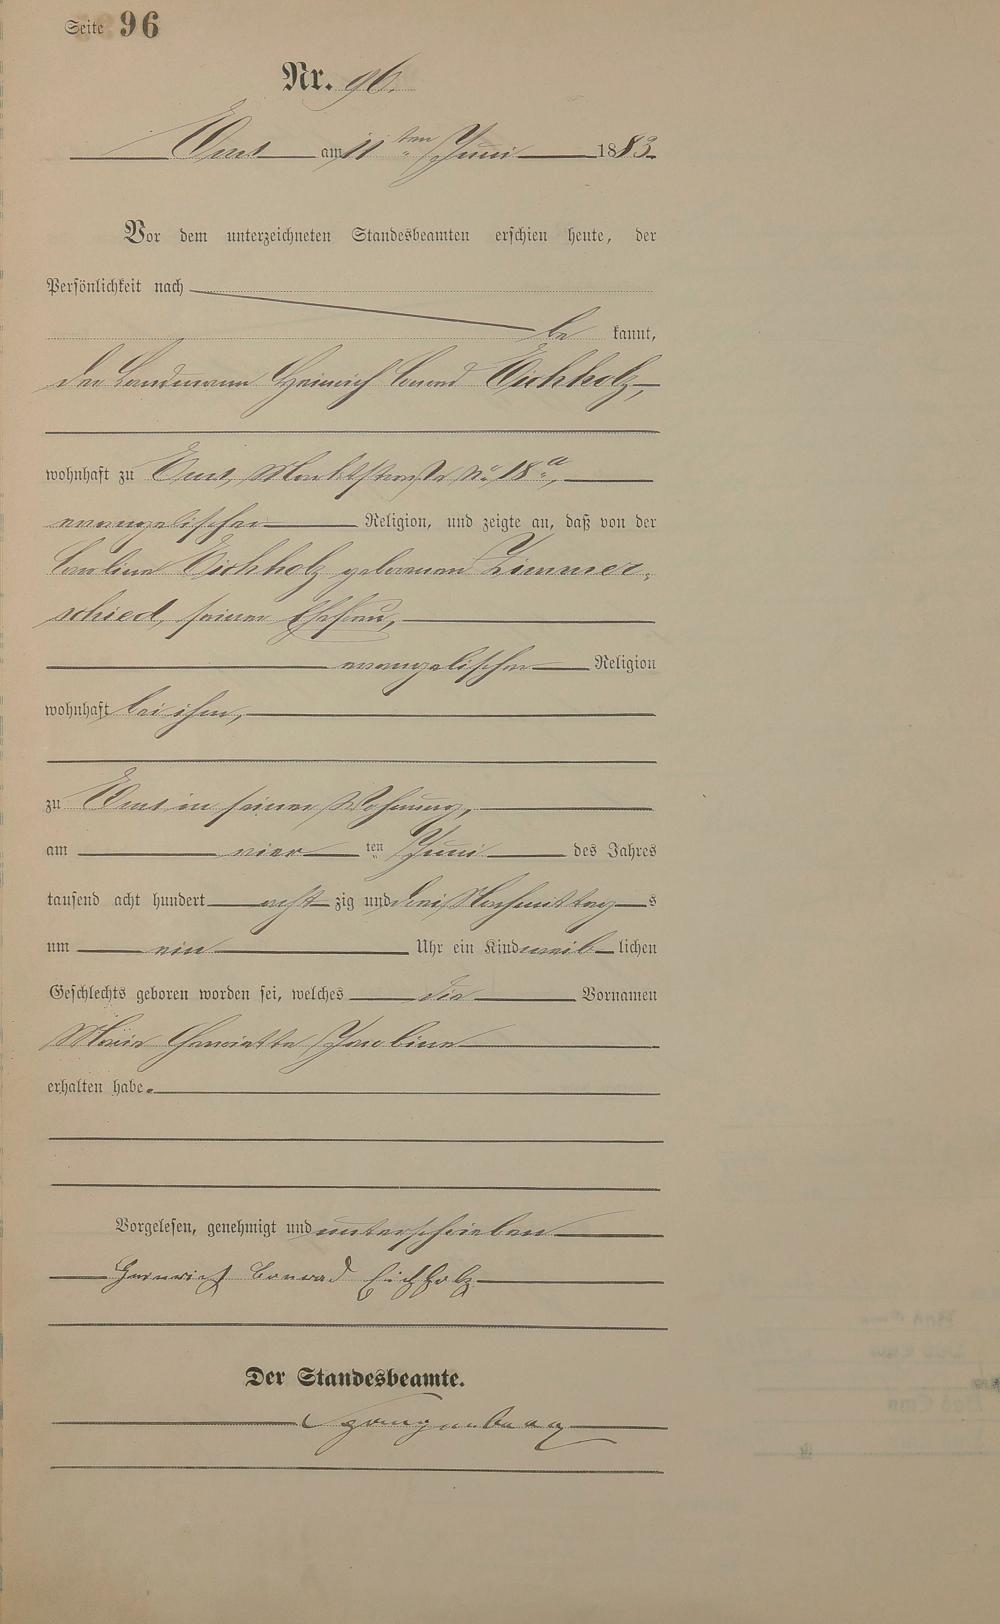 Seite 96
Nr. 96.
Ems am 11ten Juni 1883.
Vor dem unterzeichneten Standesbeamten erschien heute, der
Persönlichkeit nach
bekannt,
der Landmann Heinrich Conrad Eichholz,
wohnhaft zu Ems, Marktstraße No 18a,
evangelischer Religion, und zeigte an, daß von der
Caroline Eichholz geborenen Zimmer-
schied, seiner Ehefrau,
evangelischer Religion
wohnhaft bei ihm,
zu Ems in seiner Wohnung,
am vierten Juni des Jahres
tausend acht hundert achtzig und drei Nachmittags
um ein Uhr ein Kind weiblichen
Geschlechts geboren worden sei, welches die Vornamen
Marie Henriette Jacobine
erhalten habe.
Vorgelesen, genehmigt und unterschrieben
Heinrich Conrad Eichholz
Der Standesbeamte.